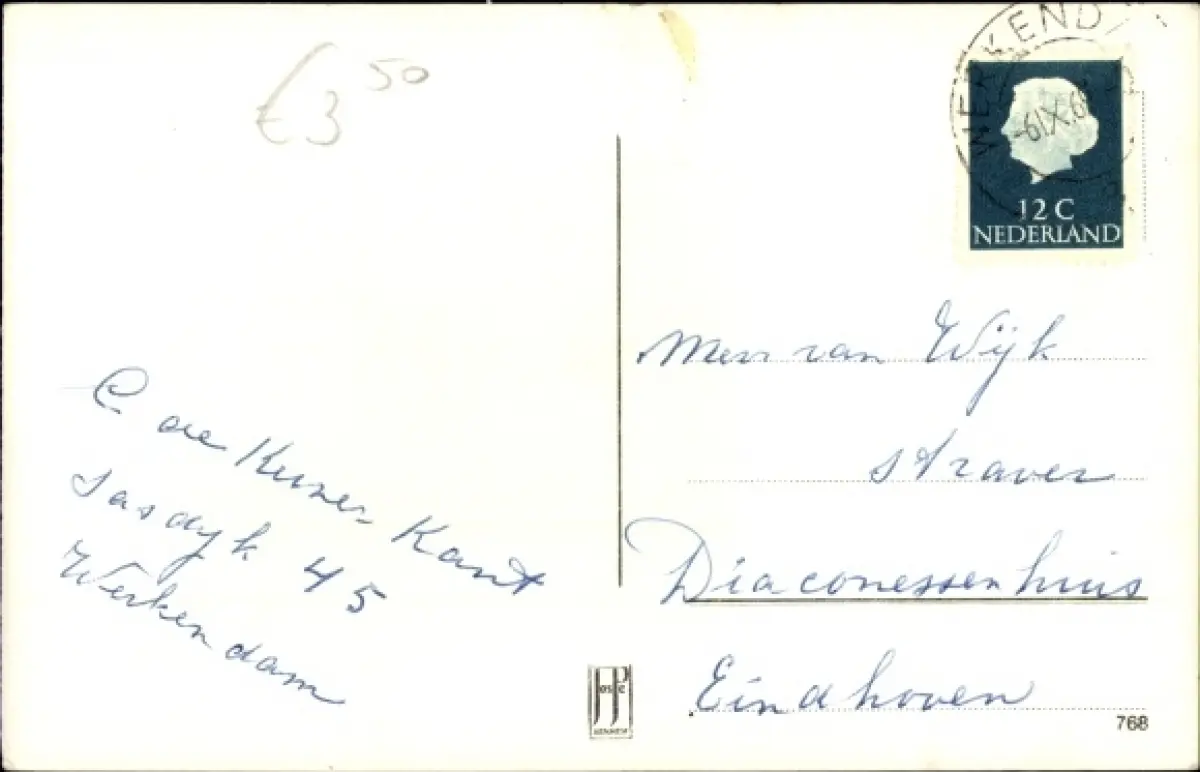 €3 50
WERKENDAM
-6.IX.6
12 C
NEDERLAND
Mevr van Wijk
straver
Diaconessenhuis
Eindhoven
C de Keizer-Kant
Sasdyk 45
Werkendam
768